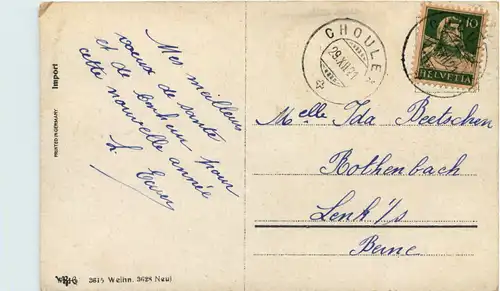 Mes meilleurs
voeux de santé
et de bonheur pour
cette nouvelle année
CHOULEX
29.XII.21
10
HELVETIA
Melle Ida Beetschen
Rothenbach
Lenk i/s
Berne
Import
PRINTED IN GERMANY
3615 Weihn. 3628 Neuj